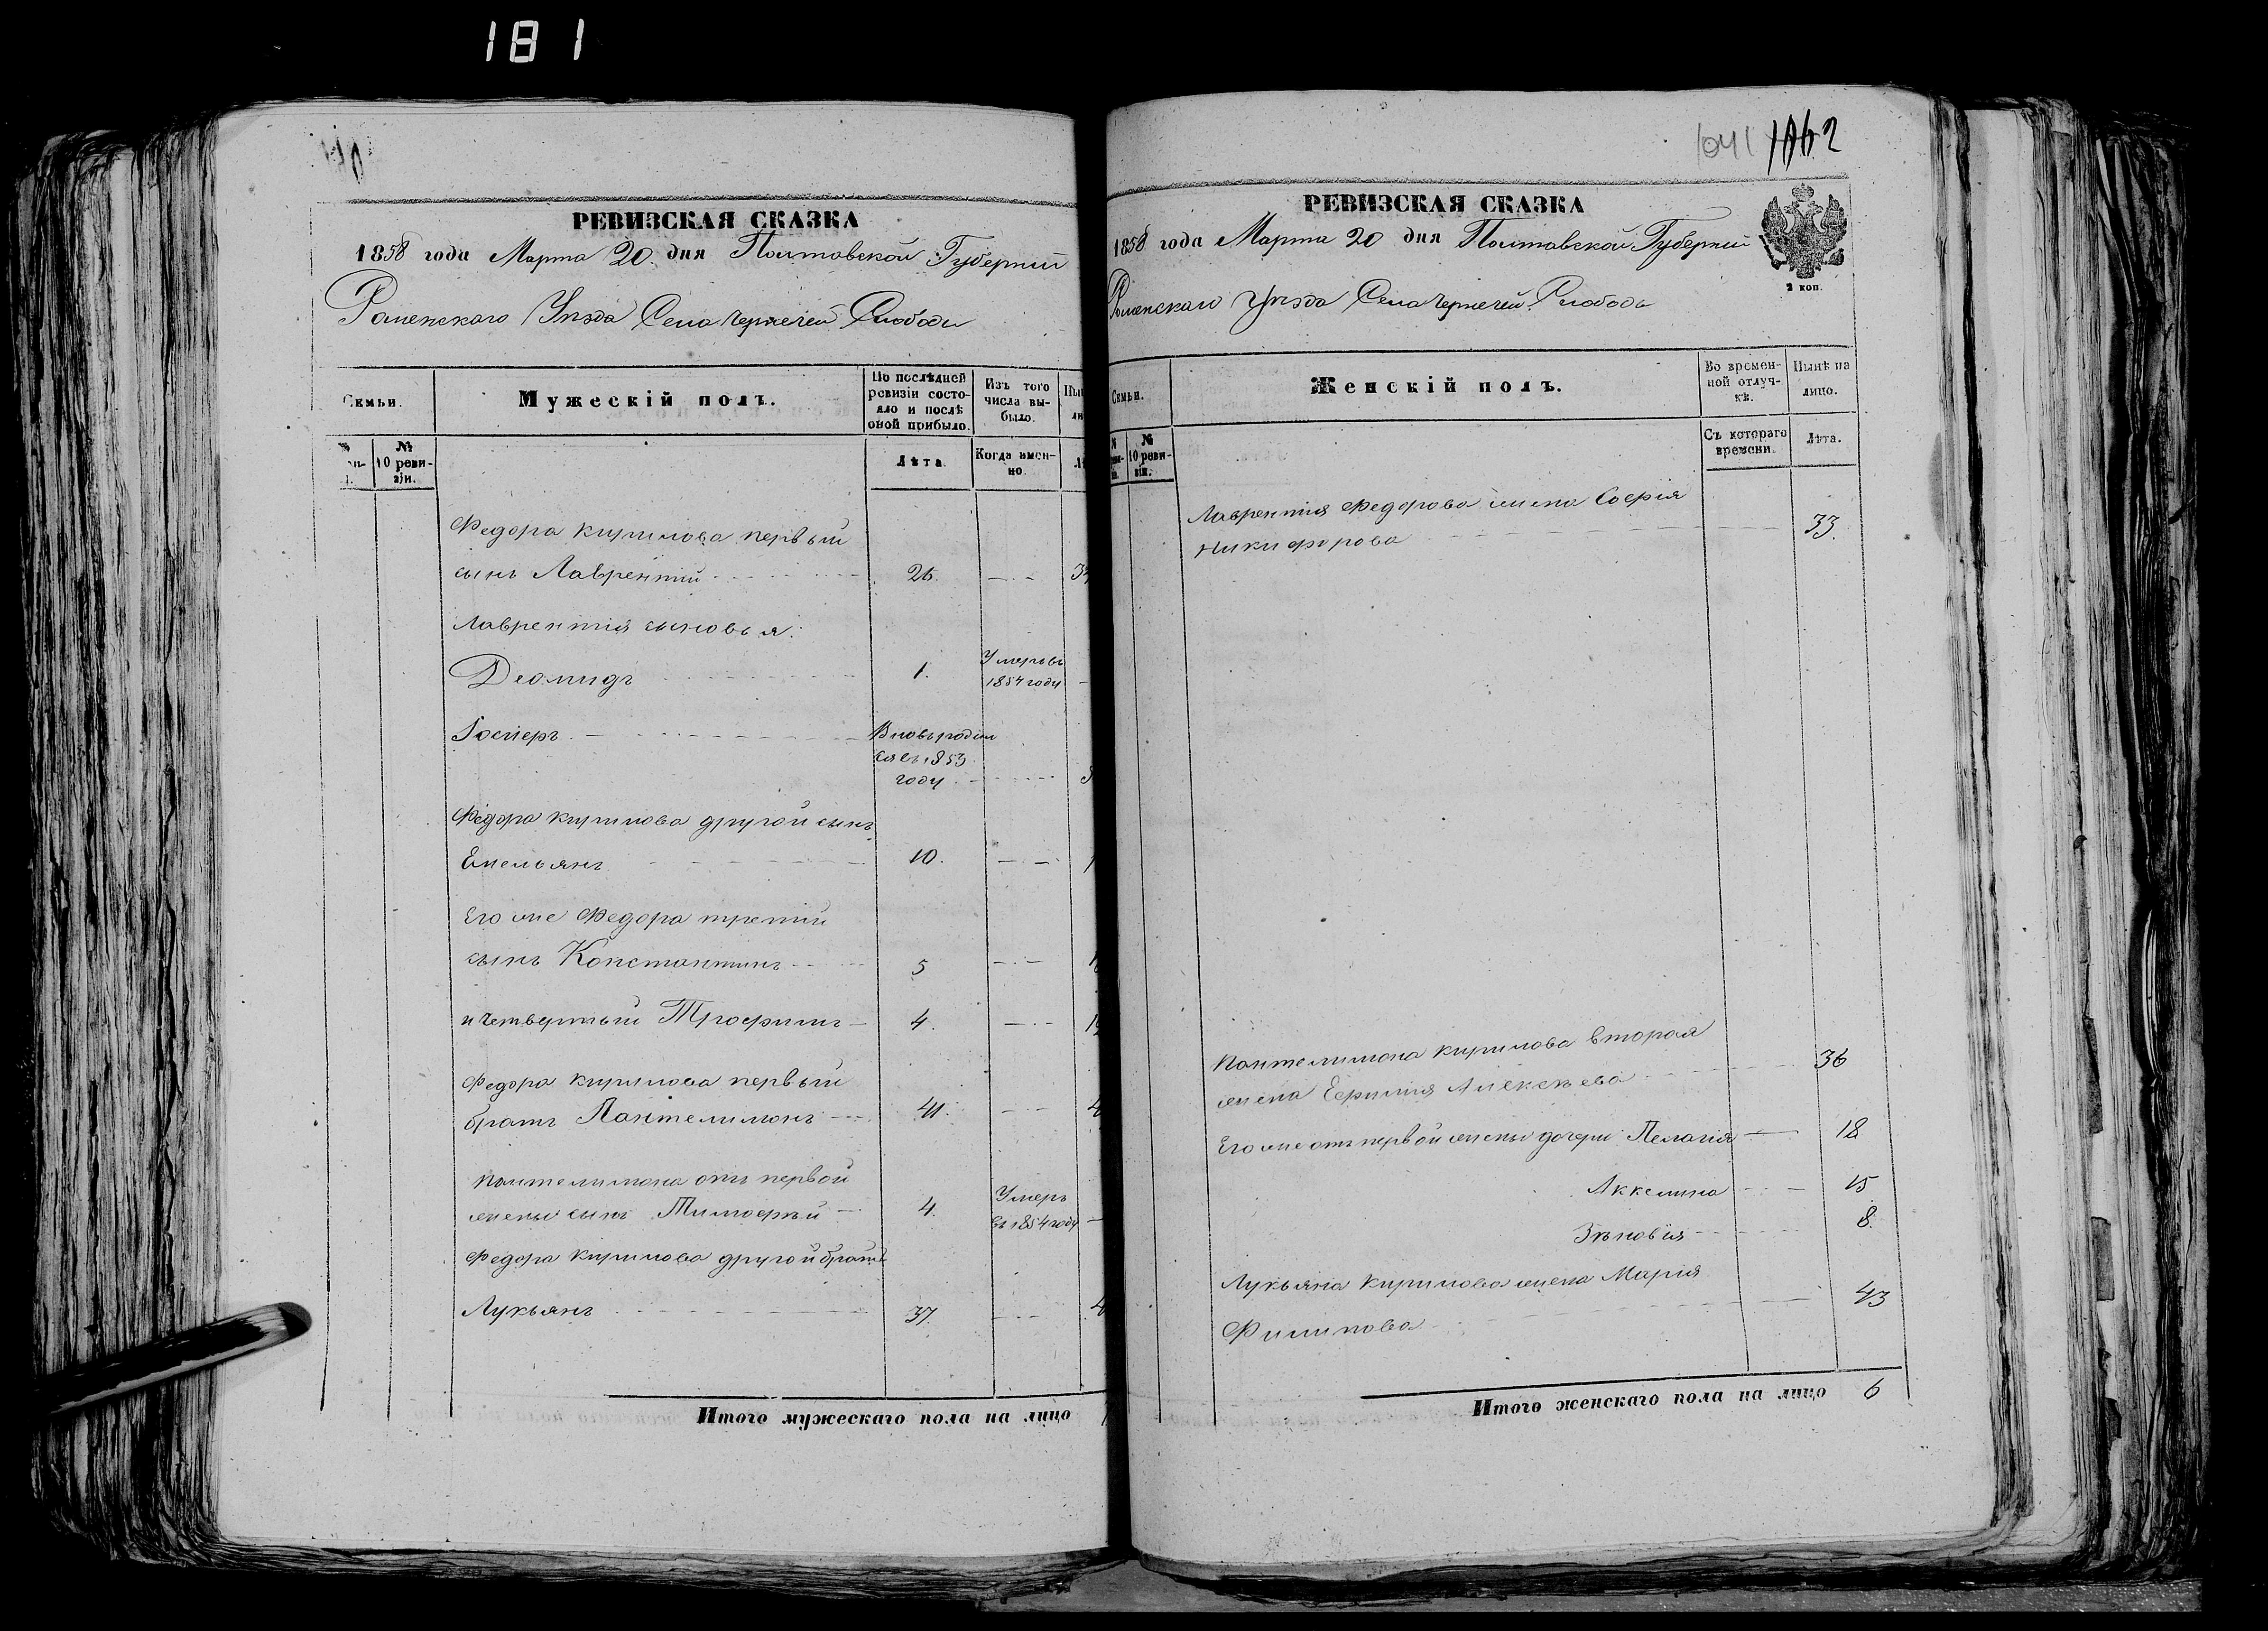 181
РЕВИЗСКАЯ СКАЗКА
1858 года Марта 20 дня Полтавской Губерніи
Роменскаго Уѣзда Села Чернечей Слободы
Семьи.
Мужескій полъ.
По послѣдней ревизіи состояло и послѣ оной прибыло.
Изъ того числа выбыло.
№ 10 ревизіи.
Лѣта
Когда именно.
Федора Кирилова первый
сынъ Лаврентій 26.
Лаврентія сыновья:
Деомидъ 1. Умеръ въ 1854 году
Іосифъ Вновь родился въ 1853 году
Федора Кирилова другой сынъ
Емельянъ 10.
Его же Федора третій
сынъ Константинъ 5
и четвертый Трофимъ 4.
Федора Кирилова первый
братъ Пантелимонъ 41.
Пантелимона отъ первой
жены сынъ Тимофей 4. Умеръ въ 1854 году
Федора Кирилова другой братъ
Лукьянъ 37.
Итого мужескаго пола на лицо
1041 1062
РЕВИЗСКАЯ СКАЗКА
1858 года Марта 20 дня Полтавской Губерніи
2 коп.
Роменскаго Уѣзда Села Чернечей Слободы
Семьи.
Женскій полъ.
Во временной отлучкѣ.
Нынѣ на лицо.
№ 10 ревизіи.
Съ котораго времени.
Лѣта.
Лаврентія Федорова жена Софія
Никифорова 33.
Пантелимона Кирилова вторая
жена Ефимія Алексѣева 36
Его же отъ первой жены дочери Пелагія 18
Аккелина 15
Зѣновія 8.
Лукьяна Кирилова жена Марія
Филипова 43
Итого женскаго пола на лицо 6